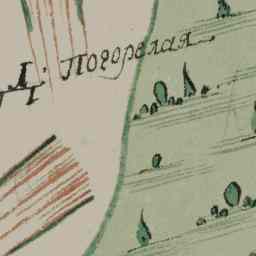 Д' Погорелая